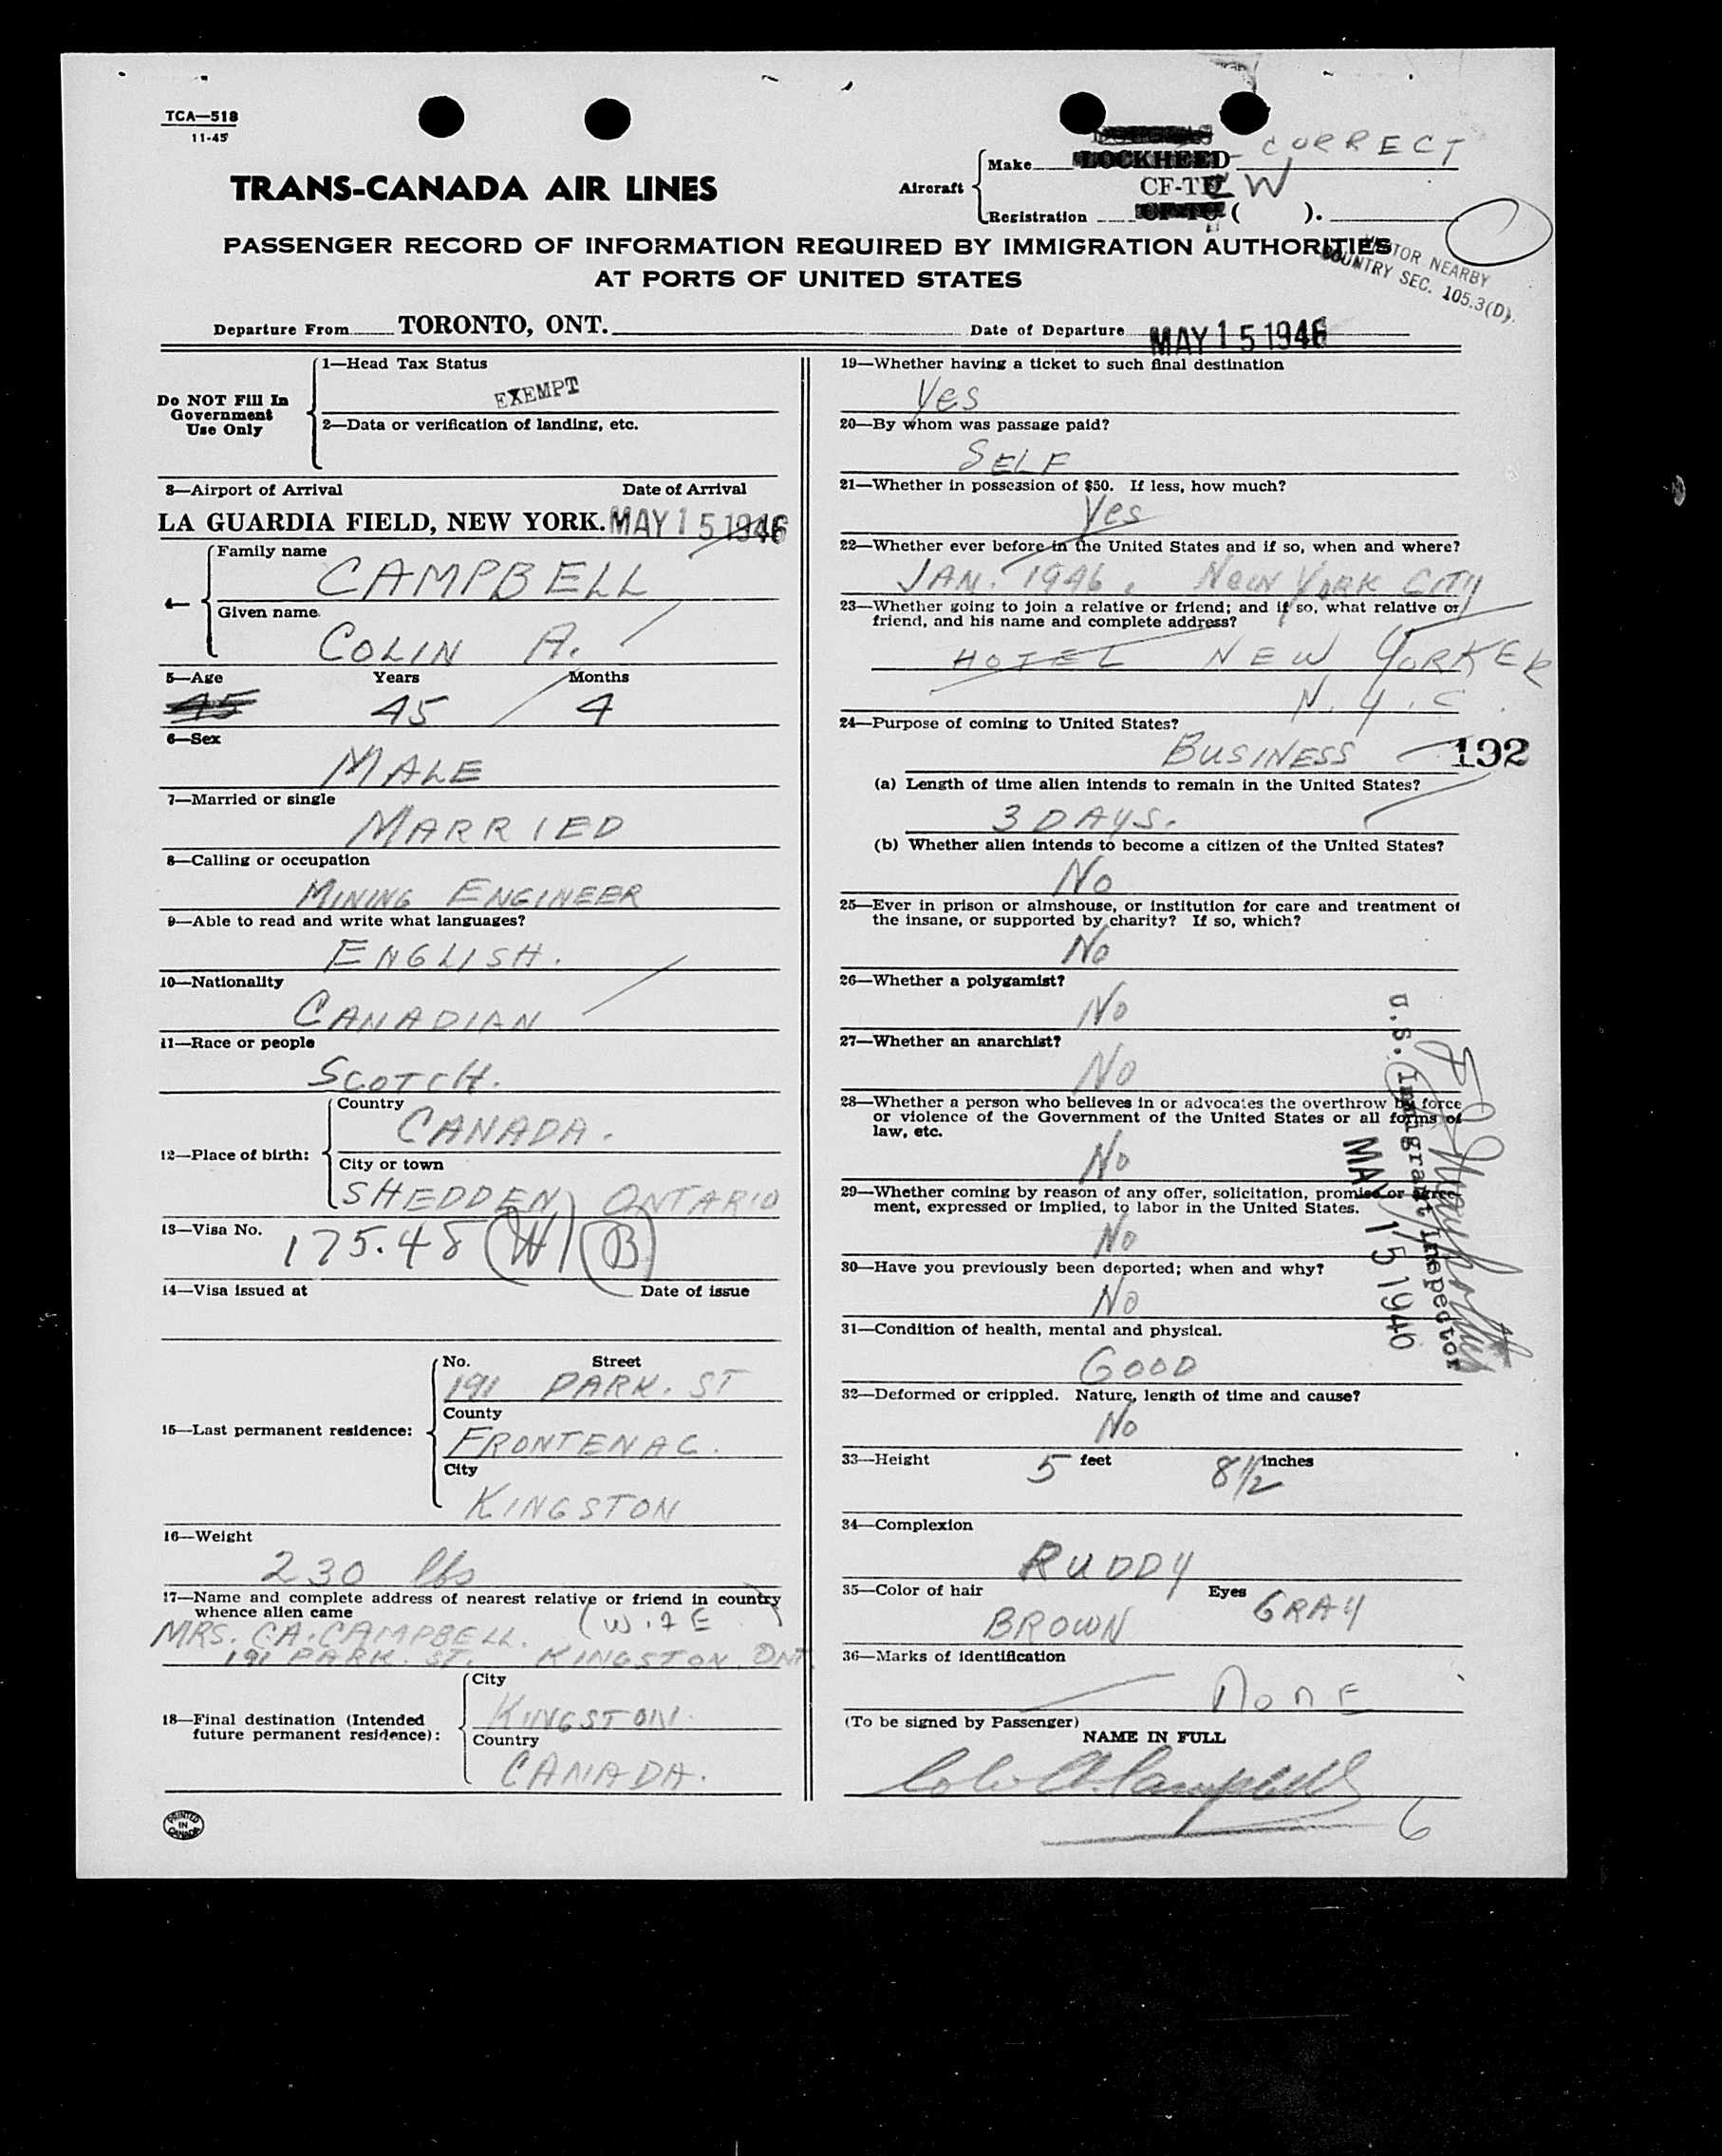 TCA—518
11-45
TRANS-CANADA AIR LINES
Aircraft
Make LOCKHEED CORRECT
CF-T W
Registration ( ).
PASSENGER RECORD OF INFORMATION REQUIRED BY IMMIGRATION AUTHORITIES
AT PORTS OF UNITED STATES
VISITOR NEARBY
COUNTRY SEC. 105.3(D).
Departure From TORONTO, ONT. Date of Departure MAY 15 1946
Do NOT Fill In
Government
Use Only
1—Head Tax Status
EXEMPT
2—Data or verification of landing, etc.
3—Airport of Arrival Date of Arrival
LA GUARDIA FIELD, NEW YORK. MAY 15 1946
4—
Family name
CAMPBELL
Given name
COLIN A.
5—Age Years Months
45 45 4
6—Sex
MALE
7—Married or single
MARRIED
8—Calling or occupation
MINING ENGINEER
9—Able to read and write what languages?
ENGLISH.
10—Nationality
CANADIAN
11—Race or people
SCOTCH.
12—Place of birth:
Country
CANADA.
City or town
SHEDDEN, ONTARIO
13—Visa No.
175.48 (W) (B)
14—Visa issued at Date of issue
15—Last permanent residence:
No. Street
191 PARK. ST
County
FRONTENAC.
City
KINGSTON
16—Weight
230 lbs
17—Name and complete address of nearest relative or friend in country
whence alien came
MRS. C.A. CAMPBELL. (WIFE)
191 PARK. ST. KINGSTON ONT.
18—Final destination (Intended
future permanent residence):
City
KINGSTON.
Country
CANADA.
PRINTED
IN
CANADA
19—Whether having a ticket to such final destination
Yes
20—By whom was passage paid?
SELF
21—Whether in possession of $50. If less, how much?
Yes
22—Whether ever before in the United States and if so, when and where?
JAN. 1946, NEW YORK CITY
23—Whether going to join a relative or friend; and if so, what relative or
friend, and his name and complete address?
HOTEL NEW YORKER
N.Y.C.
24—Purpose of coming to United States?
BUSINESS 192
(a) Length of time alien intends to remain in the United States?
3 DAYS.
(b) Whether alien intends to become a citizen of the United States?
No
25—Ever in prison or almshouse, or institution for care and treatment of
the insane, or supported by charity? If so, which?
No
26—Whether a polygamist?
No
27—Whether an anarchist?
No
28—Whether a person who believes in or advocates the overthrow by force
or violence of the Government of the United States or all forms of
law, etc.
No
29—Whether coming by reason of any offer, solicitation, promise or agree-
ment, expressed or implied, to labor in the United States.
No
30—Have you previously been deported; when and why?
No
U.S. Immigrant Inspector
MAY 15 1946
31—Condition of health, mental and physical.
GOOD
32—Deformed or crippled. Nature, length of time and cause?
No
33—Height 5 feet 8½ inches
34—Complexion
RUDDY
35—Color of hair Eyes
BROWN GRAY
36—Marks of identification
NONE
(To be signed by Passenger)
NAME IN FULL
Colin A. Campbell
6